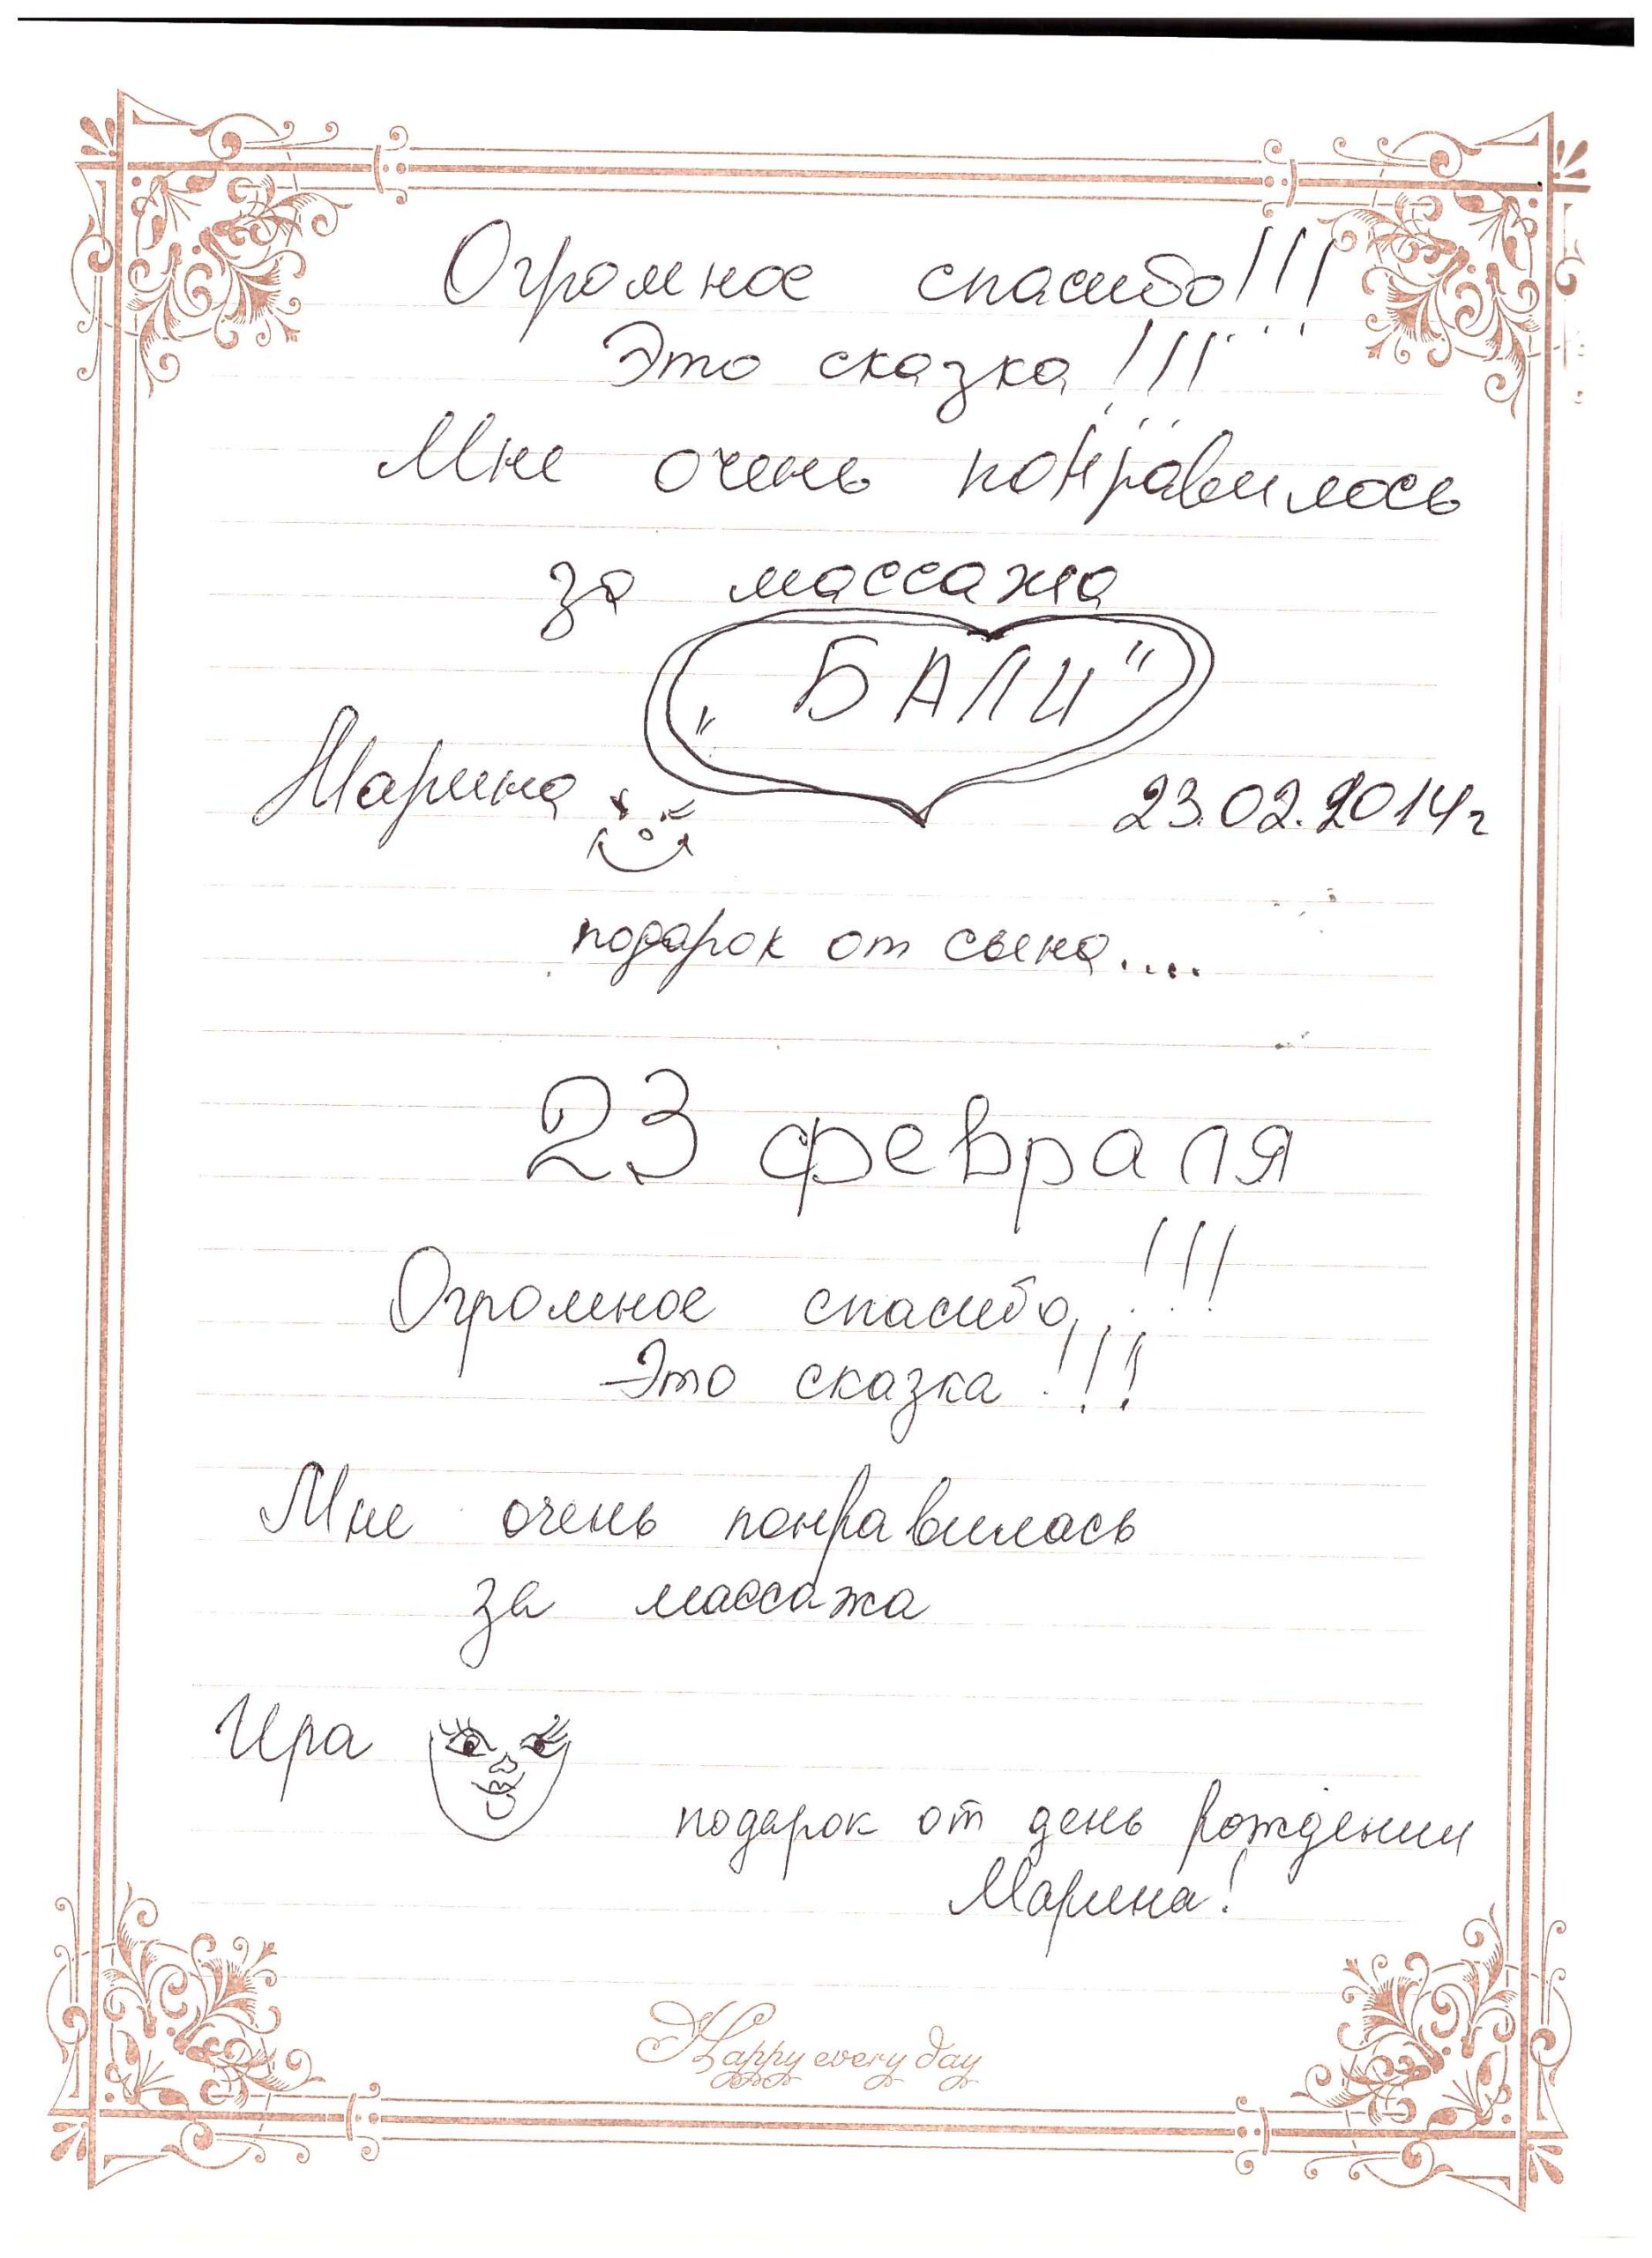 Огромное спасибо!!!
Это сказка!!!
Мне очень понравилось
за массажа
„БАЛИ“
Марина
23.02.2014г
подарок от сына....
23 февраля
Огромное спасибо!!!
Это сказка!!!
Мне очень понравилось
за массажа
Ира
подарок от день рождении
Марина!
Happy every day